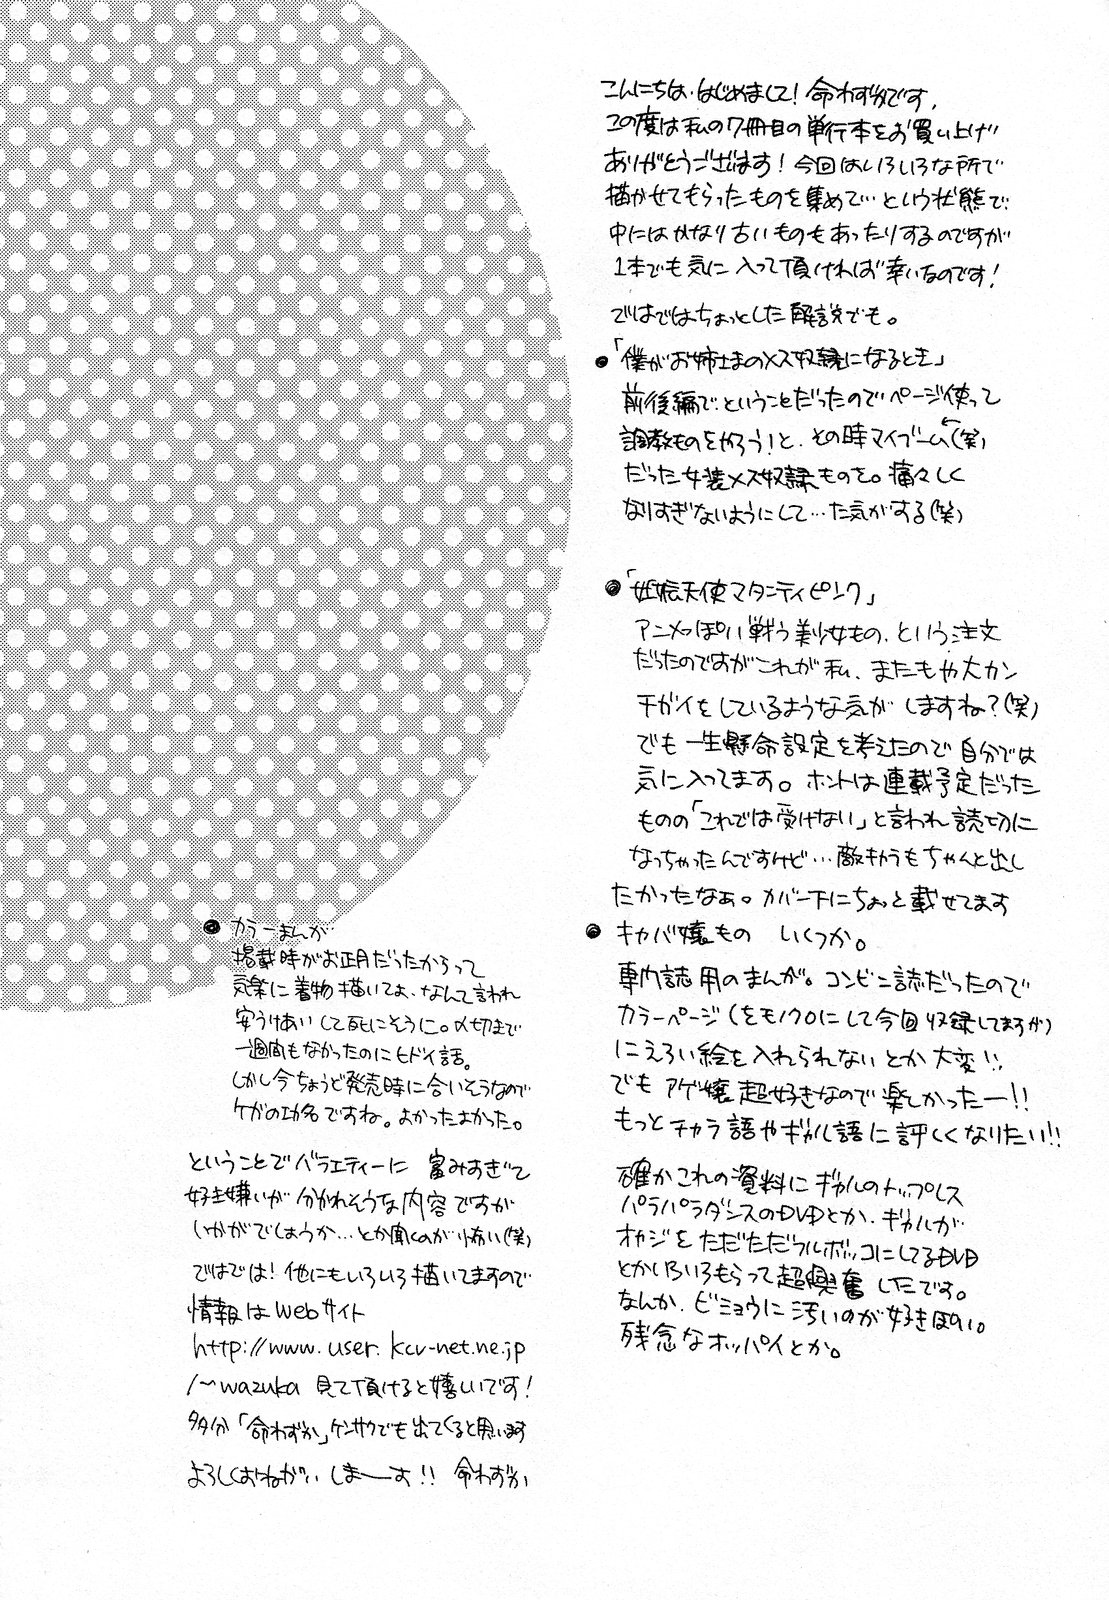 こんにちは・はじめまして！命わずかです。
この度は私の7冊目の単行本をお買い上げ
ありがとうございます！今回はいろいろな所で
描かせてもらったものを集めて…という状態で
中にはかなり古いものもあったりするのですが
1本でも気に入って頂ければ幸いなのです！
ではではちょっとした解説でも。
●「僕がお姉さまのメス奴隷になるとき」
前後編でということだったのでページ使って
調教ものをやろう！と、その時マイブーム(笑)
だった女装メス奴隷ものを。痛々しく
なりすぎないようにして…た気がする(笑)
●「妊娠天使マタニティピンク」
アニメっぽい戦う美少女もの、という注文
だったのですがこれが私、またもや大カン
チガイをしているような気がしますね？(笑)
でも一生懸命設定を考えたので自分では
気に入ってます。ホントは連載予定だった
ものの「これでは受けない」と言われ読切に
なっちゃったんですけど…敵キャラもちゃんと出し
たかったなぁ。カバー下にちょっと載せてます
●キャバ嬢もの いくつか。
専門誌用のまんが。コンビニ誌だったので
カラーページ(をモノクロにして今回収録してますが)
にえろい絵を入れられないとか大変!!
でもアゲ嬢超好きなので楽しかったー!!
もっとチャラ語やギャル語に詳しくなりたい!!
確かこれの資料にギャルのトップレス
パラパラダンスのDVDとか、ギャルが
オヤジをただただフルボッコにしてるDVD
とかいろいろもらって超興奮したです。
なんか、ビミョウに汚いのが好きぽい。
残念なオッパイとか。
●カラーまんが
掲載時がお正月だったからって
気楽に着物描いてよ、なんて言われ
安うけあいして死にそうに。〆切まで
一週間もなかったのにヒドイ話。
しかし今ちょうど発売時に合いそうなので
ケガの功名ですね。よかったよかった。
ということでバラエティーに富みすぎて
好き嫌いが分かれそうな内容ですが
いかがでしょうか…とか聞くのが怖い(笑)
ではでは！他にもいろいろ描いてますので
情報はWebサイト
http://www.user.kcv-net.ne.jp
/~wazuka 見て頂けると嬉しいです！
多分「命わずか」ケンサクでも出てくると思います
よろしくおねがいしまーす!! 命わずか